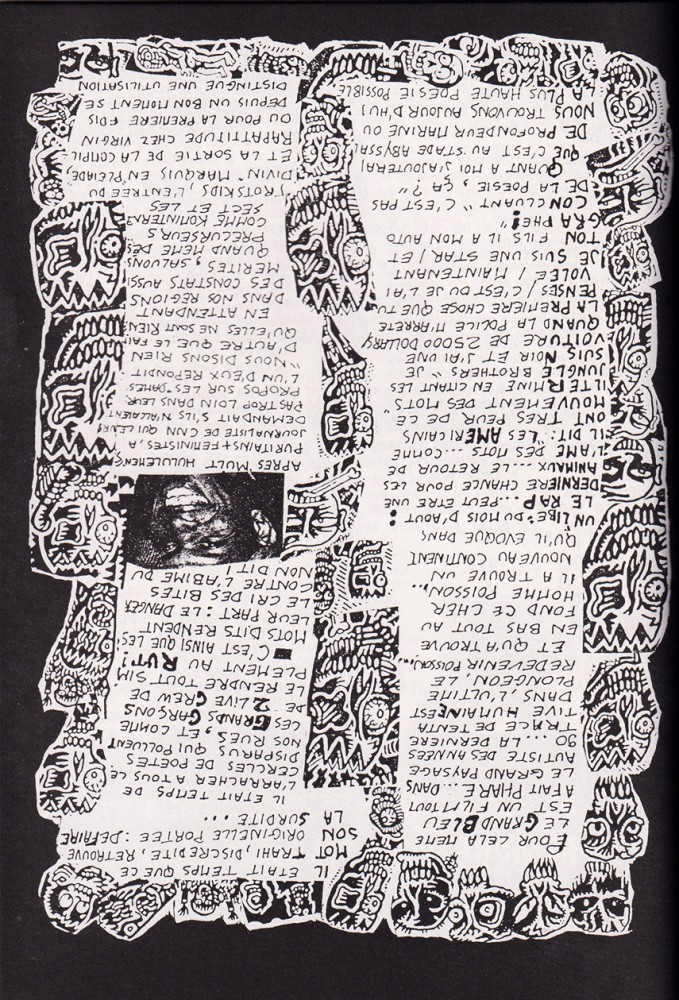 POUR CELA MEME
LE GRAND BLEU
EST UN FILM TOUT
A FAIT PHARE... DANS
LE GRAND PAYSAGE
AUTISTE DES ANNEES
90 ... LA DERNIERE
TRACE DE TENTA
TIVE HUMAINE EST
DANS, L'ULTIME
PLONGEON, LE,
REDEVENIR POISSON...
ET QU'A TROUVE
EN BAS TOUT AU
FOND CE CHER
HOMME POISSON...
IL A TROUVE UN
NOUVEAU CONTINENT
QU'IL EVOQUE DANS
UN LIBE: DU MOIS D'AOUT:
LE RAP ... PEUT ETRE UNE
DERNIERE CHANCE POUR LES
ANIMAUX ... LE RETOUR DE
L'AME DES MOTS ... COMME
IL DIT: "LES AMERICAINS
ONT TRES PEUR DE CE
MOUVEMENT DES MOTS"
IL TERMINE EN CITANT LES
JUNGLE BROTHERS "JE
SUIS NOIR ET J'AI UNE
VOITURE DE 25000 DOLLARS/
QUAND LA POLICE M'ARRETE
LA PREMIERE CHOSE QUE TU
PENSES / C'EST DU JE L'AI
VOLEE / MAINTENANT
JE SUIS UNE STAR / ET
TON FILS IL A MON AUTO
GRAPHE!"
CONCLUANT "C'EST PAS
DE LA POESIE, ÇA ?"
QUANT A MOI J'AJOUTERAI
QUE C'EST AU STADE ABYSSAL
DE PROFONDEUR MARINE OU
NOUS TROUVONS AUJOURD'HUI
LA PLUS HAUTE POESIE POSSIBLE.
IL ETAIT TEMPS QUE CE
MOT TRAHI, DISCREDITE, RETROUVE
SON ORIGINELLE PORTEE: DEFAIRE
LA SURDITE ...
IL ETAIT TEMPS DE
L'ARRACHER A TOUS CES
CERCLES DE POETES
DISPARUS QUI POLLUENT
NOS RUES, ET, COMME
LES GRANDS GARÇONS
DE 2 LIVE CREW DE
LE RENDRE TOUT SIM
PLEMENT AU RUT!
C'EST AINSI QUE LES
MOTS DITS RENDENT
LEUR PART: LE DANGER
LE CRI DES BITES
CONTRE L'ABIME DU
NON DIT!
APRES MULT HULULEMENTS
PURITAINS + FEMINISTES, A,
JOURNALISTE DE CNN QUI LEURS
DEMANDAIT S'ILS N'ALLAIENT
PAS TROP LOIN DANS LEUR
PROPOS SUR LES DAMES,
L'UN D'EUX REPONDIT
"NOUS DISONS RIEN
D'AUTRE QUE LE FAIT
QU'ELLES NE SONT RIEN"
EN ATTENDANT
DANS NOS REGIONS
DES CONSTATS AUSSI
MERITES, SALUONS
QUAND MEME DES
PRECURSEURS
COMME KOMINTERN
SECT ET LES
TROTSKIDS, L'ENTREE DU
DIVIN MARQUIS EN PLEIADE
ET LA SORTIE DE LA COMPIL
RAPATTITUDE CHEZ VIRGIN
OU POUR LA PREMIERE FOIS
DEPUIS UN BON MOMENT SE
DISTINGUE UNE UTILISATION